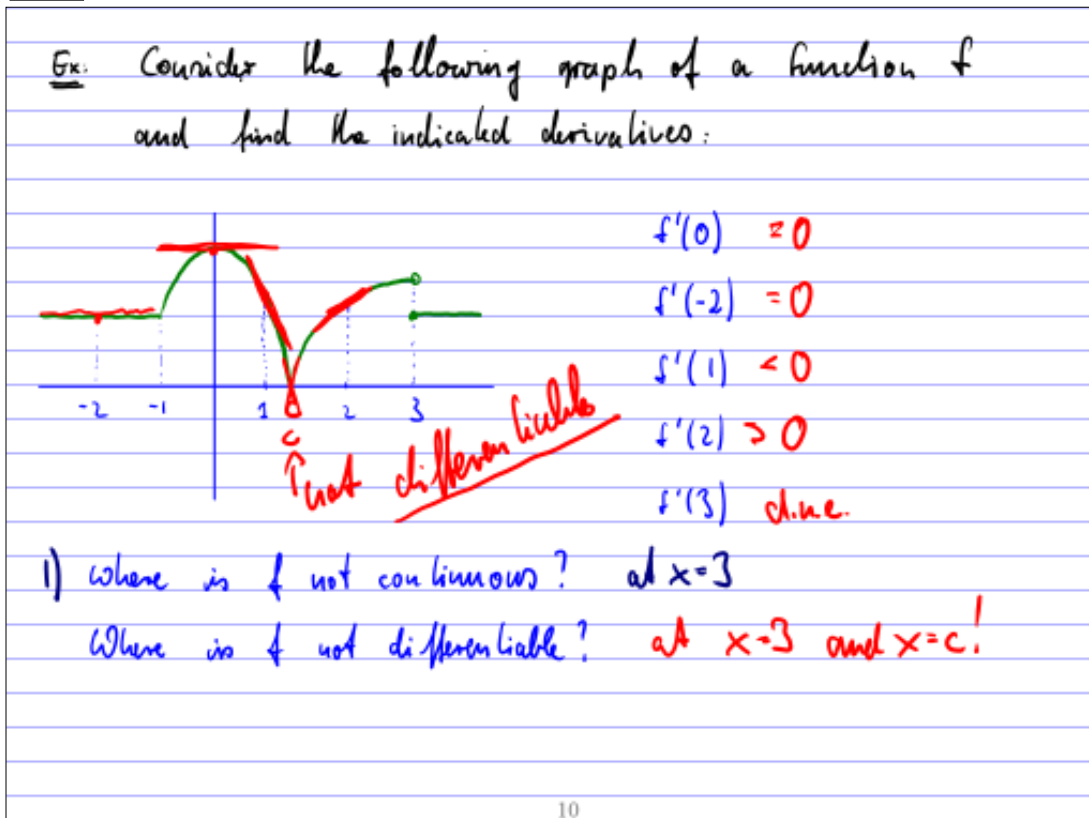 Ex: Consider the following graph of a function f
and find the indicated derivatives:
f'(0) = 0
f'(-2) = 0
f'(1) < 0
f'(2) > 0
f'(3) d.n.e.
-2 -1 1 2 3
c
not differentiable
1) Where is f not continuous? at x=3
Where is f not differentiable? at x=3 and x=c!
10